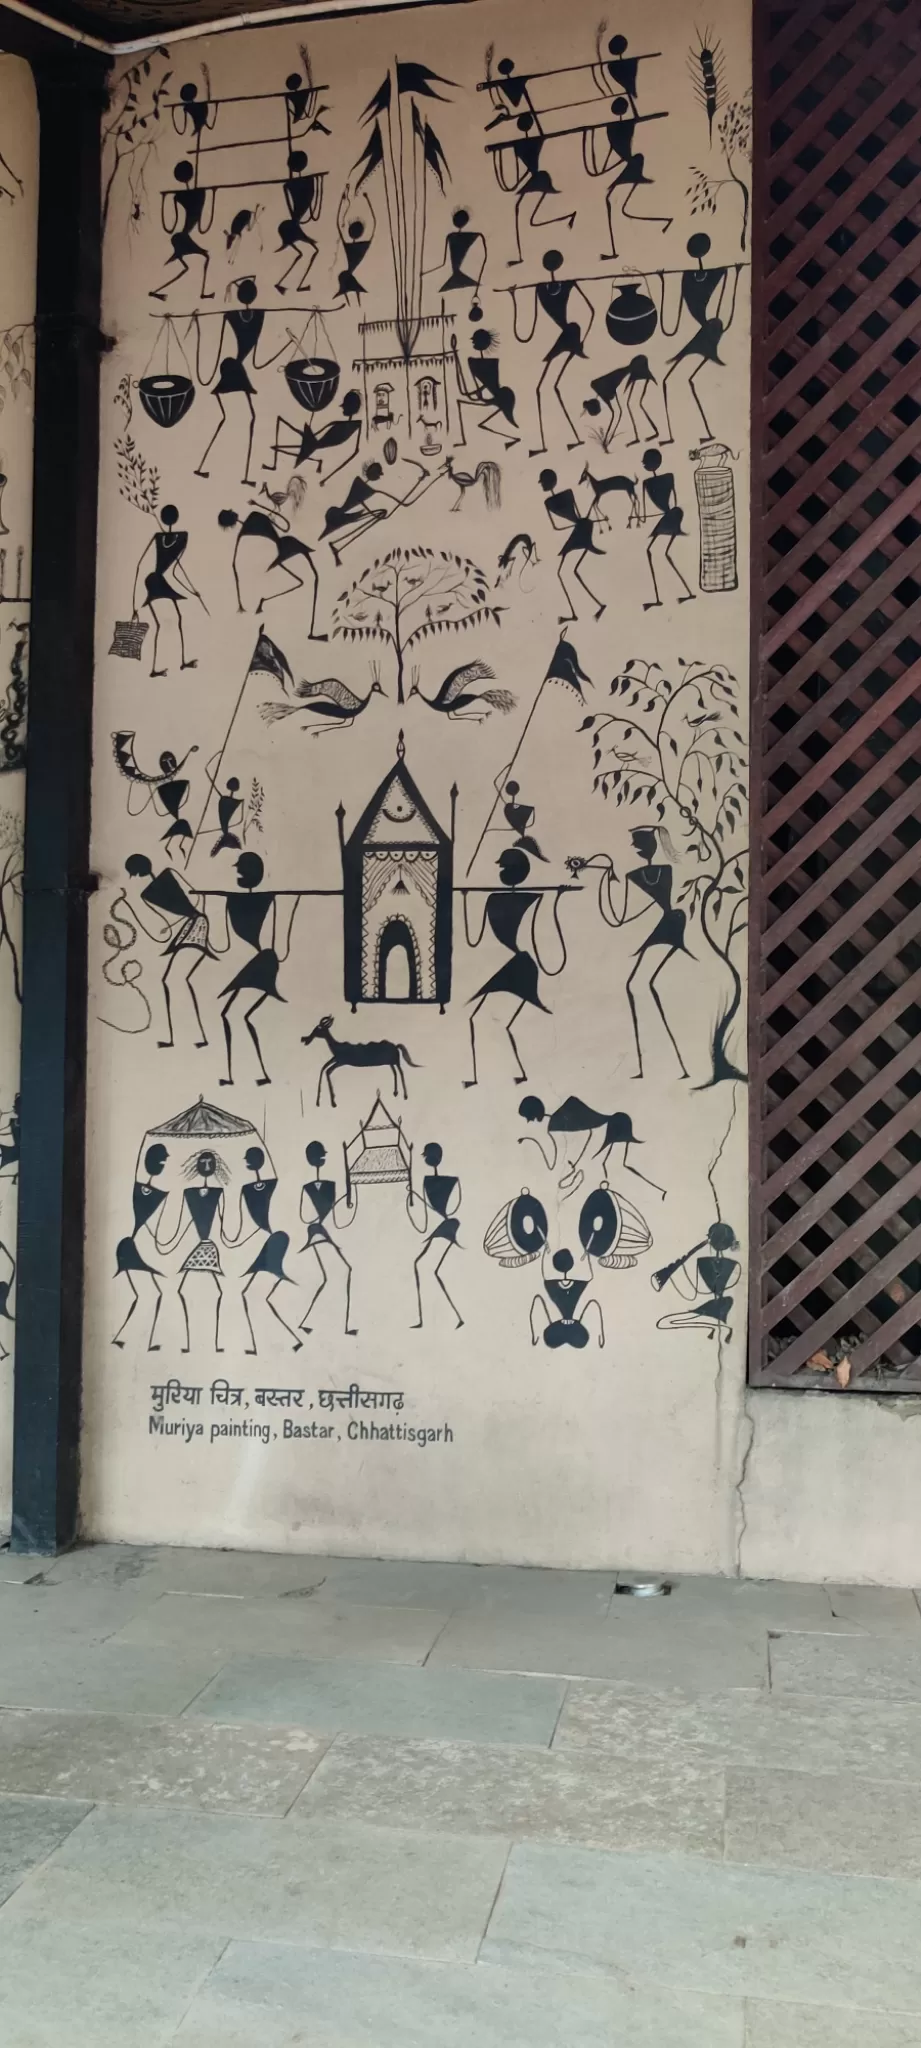 मुरिया चित्र, बस्तर, छत्तीसगढ़
Muriya painting, Bastar, Chhattisgarh